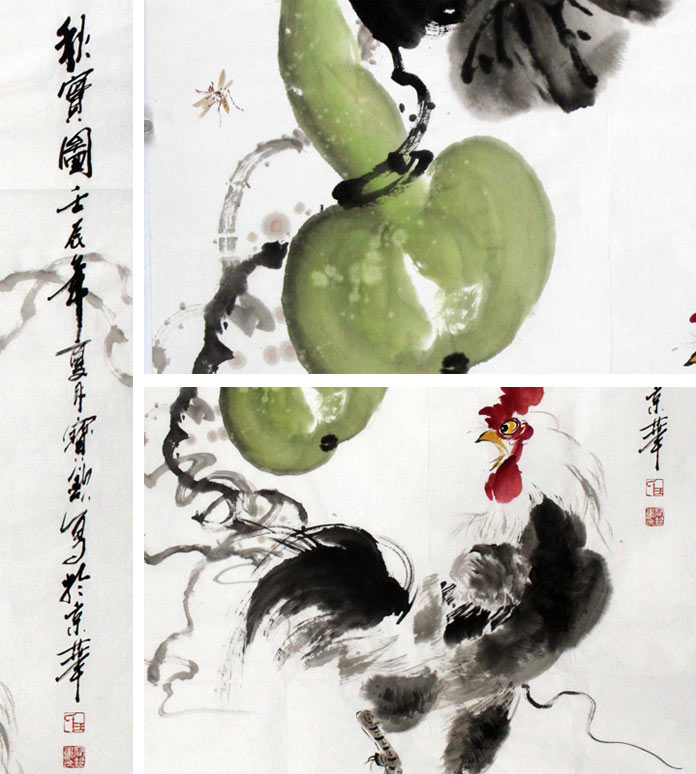 秋實圖壬辰年夏月寶欽寫於京華
京華